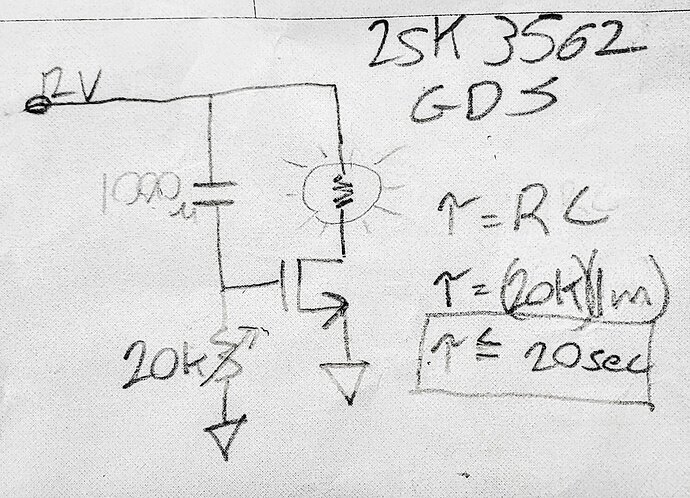 2SK 3562
GDS
12V
1000μ
τ = RC
τ = (20k)(1m)
τ ≤ 20sec
20k